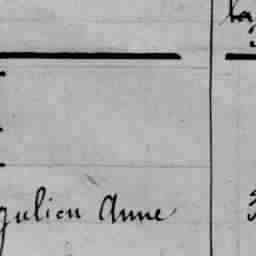 la
Julien Anne